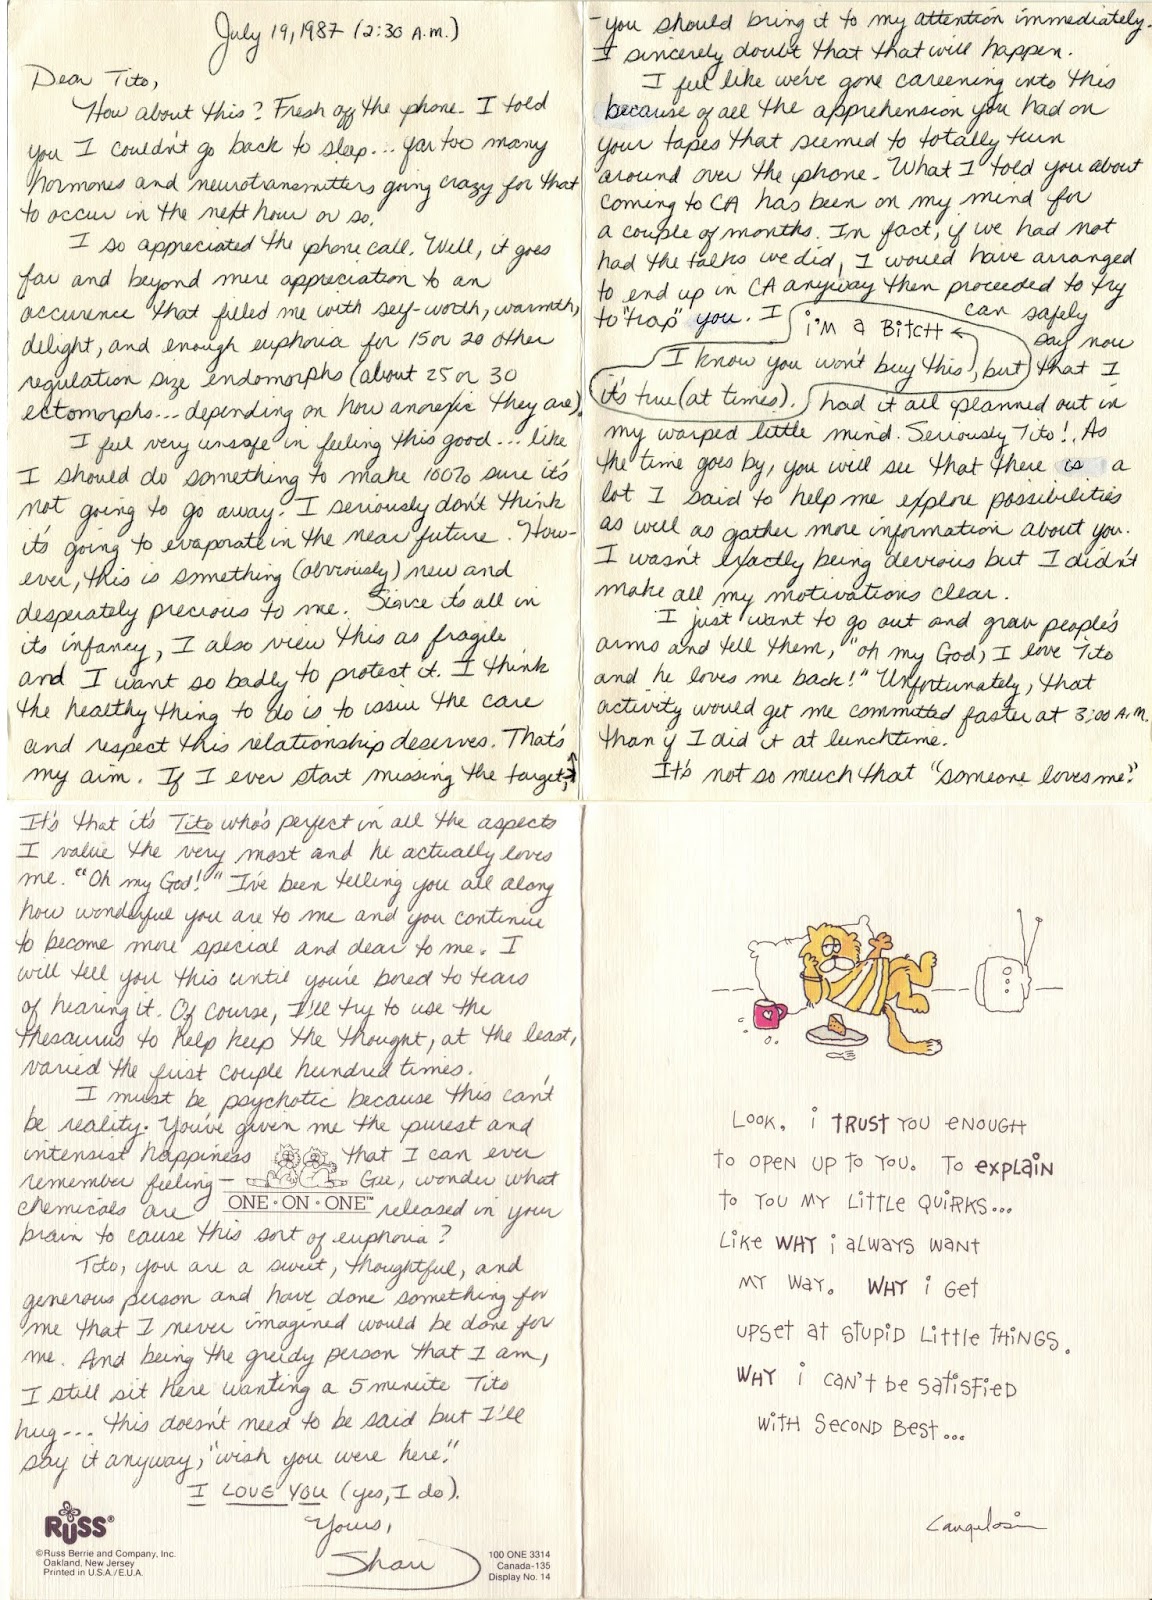 July 19, 1987 (2:30 A.M.)
Dear Tito,
How about this? Fresh off the phone. I told
you I couldn't go back to sleep... far too many
hormones and neurotransmitters going crazy for that
to occur in the next hour or so.
I so appreciated the phone call. Well, it goes
far and beyond mere appreciation to an
occurence that filled me with self-worth, warmth,
delight, and enough euphoria for 15 or 20 other
regulation size endomorphs (about 25 or 30
ectomorphs... depending on how anorexic they are).
I feel very unsafe in feeling this good... like
I should do something to make 100% sure it's
not going to go away. I seriously don't think
it's going to evaporate in the near future. How-
ever, this is something (obviously) new and
desperately precious to me. Since it's all in
its infancy, I also view this as fragile
and I want so badly to protect it. I think
the healthy thing to do is to issue the care
and respect this relationship deserves. That's
my aim. If I ever start missing the target,
-you should bring it to my attention immediately.
I sincerely doubt that that will happen.
I feel like we've gone careening into this
because of all the apprehension you had on
your tapes that seemed to totally turn
around over the phone. What I told you about
coming to CA has been on my mind for
a couple of months. In fact, if we had not
had the talks we did, I would have arranged
to end up in CA anyway then proceeded to try
to "trap" you. I can safely
say now
i'm a BitcH
I know you won't buy this, but that I
it's true (at times). had it all planned out in
my warped little mind. Seriously Tito! As
the time goes by, you will see that there is a
lot I said to help me explore possibilities
as well as gather more information about you.
I wasn't exactly being devious but I didn't
make all my motivations clear.
I just want to go out and grab people's
arms and tell them, "oh my God, I love Tito
and he loves me back!" Unfortunately, that
activity would get me committed faster at 3:00 A.M.
than if I did it at lunchtime.
It's not so much that "someone loves me."
It's that it's Tito who's perfect in all the aspects
I value the very most and he actually loves
me. "Oh my God!" I've been telling you all along
how wonderful you are to me and you continue
to become more special and dear to me. I
will tell you this until you're bored to tears
of hearing it. Of course, I'll try to use the
thesaurus to help keep the thought, at the least,
varied the first couple hundred times.
I must be psychotic because this can't
be reality. You've given me the purest and
intensist happiness that I can ever
remember feeling - Gee, wonder what
chemicals are ONE·ON·ONE™ released in your
brain to cause this sort of euphoria?
Tito, you are a sweet, thoughtful, and
generous person and have done something for
me that I never imagined would be done for
me. And being the greedy person that I am,
I still sit here wanting a 5 minute Tito
hug... this doesn't need to be said but I'll
say it anyway, "wish you were here."
I LOVE YOU (yes, I do).
Yours,
Shari
RUSS®
©Russ Berrie and Company, Inc.
Oakland, New Jersey
Printed in U.S.A./E.U.A.
100 ONE 3314
Canada-135
Display No. 14
Look, i TRUST you enough
to open up to you. To explain
to you my little quirks...
Like WHY i always want
my way. WHY i get
upset at stupid little things.
WHY i can't be satisfied
with second best...
Cangelosi